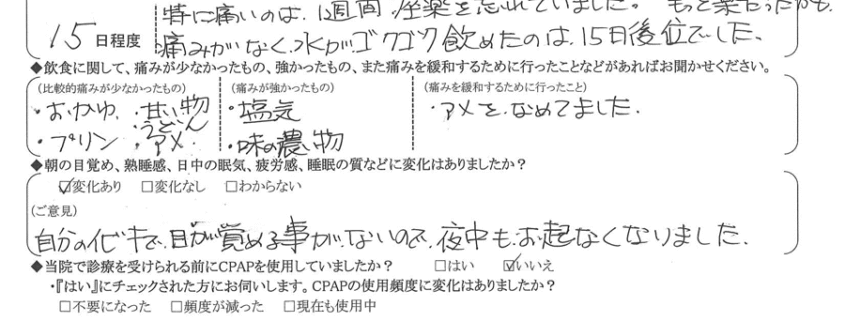 特に痛いのは、1週間、座薬を忘れていました。もっと楽だったかも、
15日程度
痛みがなく、水がゴクゴク飲めたのは、15日後位でした。
◆飲食に関して、痛みが少なかったもの、強かったもの、また痛みを緩和するために行ったことなどがあればお聞かせください。
(比較的痛みが少なかったもの) (痛みが強かったもの) (痛みを緩和するために行ったこと)
・おかゆ ・甘い物 ・塩気 ・アメを、なめてました。
・うどん
・プリン ・アメ ・味の濃い物
◆朝の目覚め、熟睡感、日中の眠気、疲労感、睡眠の質などに変化はありましたか?
☑変化あり □変化なし □わからない
(ご意見)
自分のイビキで、目が覚める事が、ないので、夜中も、お起なくなりました、
◆当院で診療を受けられる前にCPAPを使用していましたか? □はい ☑いいえ
・『はい』にチェックされた方にお伺いします。CPAPの使用頻度に変化はありましたか?
□不要になった □頻度が減った □現在も使用中